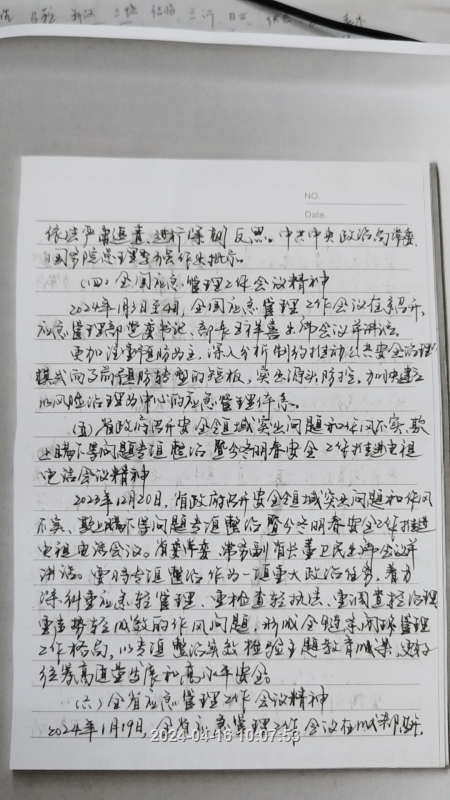 NO.
Date.
依法严肃追责、进行深刻反思。中共中央政治局常委
国务院总理李强作出批示。
(四)全国应急管理工作会议精神
2024年1月5日至6日,全国应急管理工作会议在京召开,
应急管理部党委书记、部长王祥喜出席会议并讲话。
更加注重预防为主,深入分析制约推动公共安全治理
模式向事前预防转型的短板,突出源头防控,加快建立
以风险治理为中心的应急管理体系。
(五)省政府召开安全领域突出问题和作风不实、欺
上瞒下等问题专项整治暨今冬明春安全工作推进电视
电话会议精神
2023年12月20日,省政府召开安全领域突出问题和作风
不实、欺上瞒下等问题专项整治暨今冬明春安全工作推进
电视电话会议。省委常委、常务副省长董卫民出席会议并
讲话。要将专项整治作为一项重大政治任务,着力
纠重应急轻管理、重检查轻执法、重调查轻治理
重声势轻成效的作风问题,形成全链条闭环管理
工作格局,以专项整治实效检验主题教育成果,更好
统筹高质量发展和高水平安全。
(六)全省应急管理工作会议精神
2024年1月19日,全省应急管理工作会议在成都召开。
2024-04-16 10:07:53